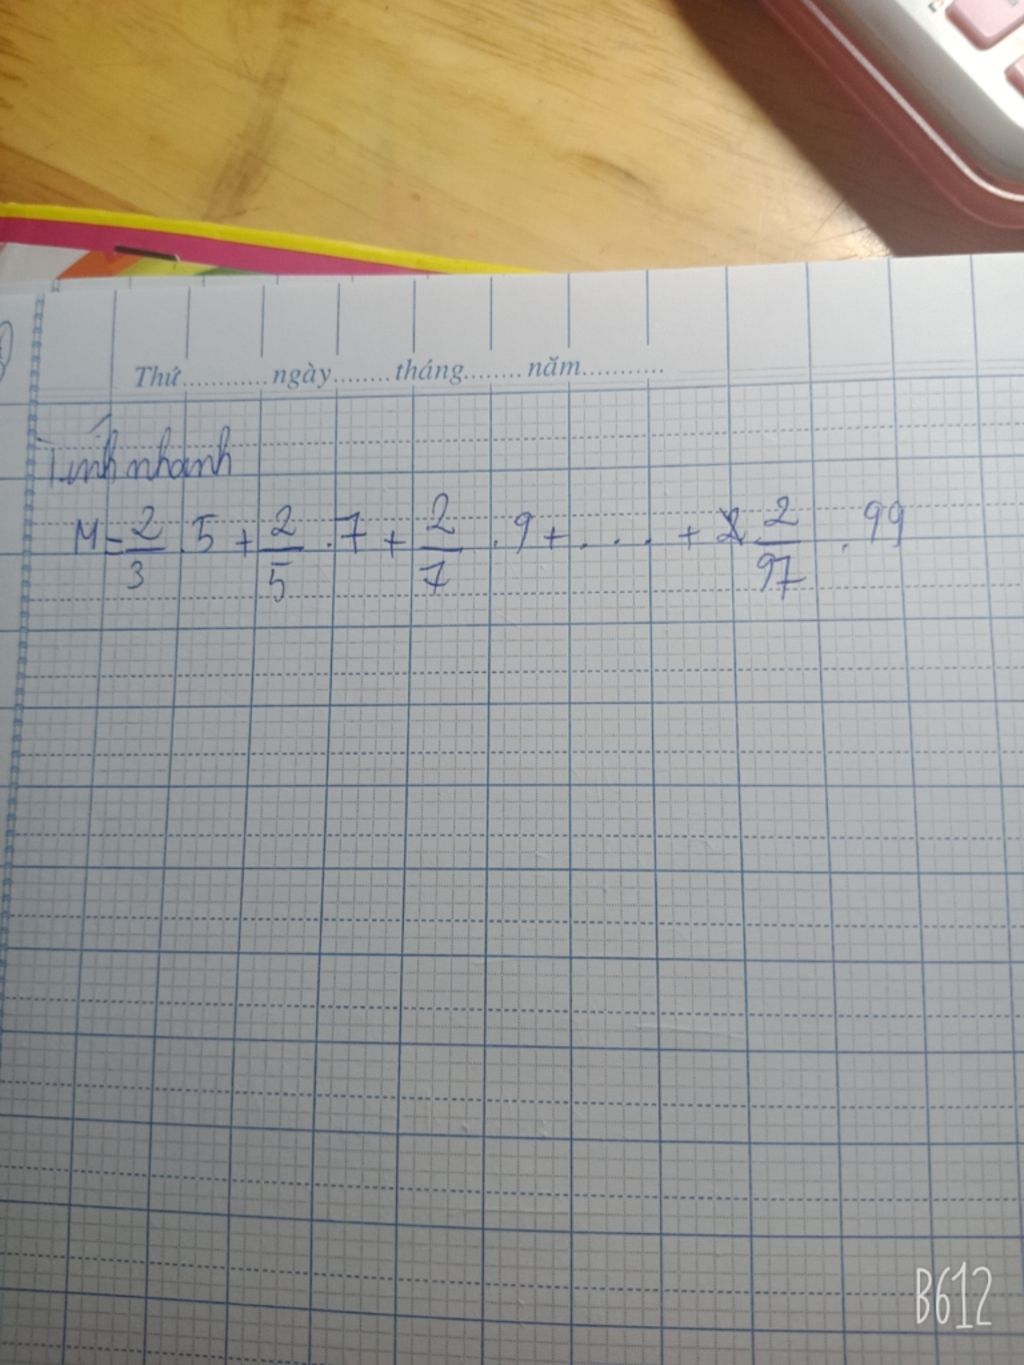 Thứ............ngày........tháng........năm...........
Tính nhanh
M = 2/3 . 5 + 2/5 . 7 + 2/7 . 9 + . . . + 2/97 . 99
B612